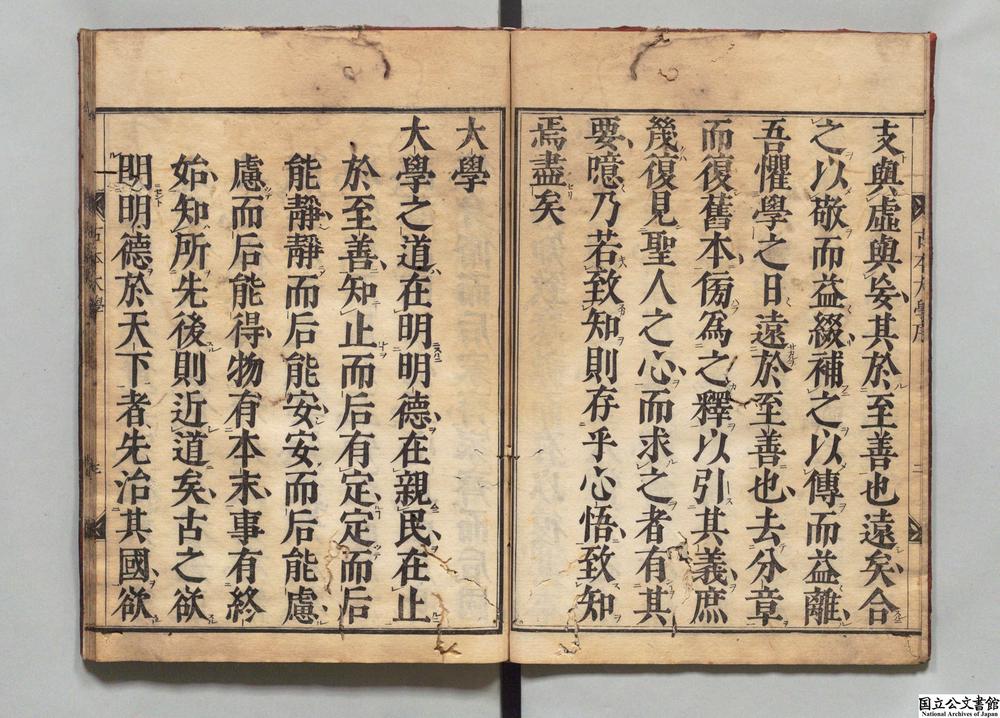 支與虛與妄其於至善也遠矣合
之以敬而益綴補之以傳而益離
吾懼學之日遠於至善也去分章
而復舊本傍為之釋以引其義庶
幾復見聖人之心而求之者有其
要噫乃若致知則存乎心悟致知
焉盡矣
大學
大學之道在明明德在親民在止
於至善知止而后有定定而后
能靜靜而后能安安而后能慮
慮而后能得物有本末事有終
始知所先後則近道矣古之欲
明明德於天下者先治其國欲
古本大學
国立公文書館
National Archives of Japan